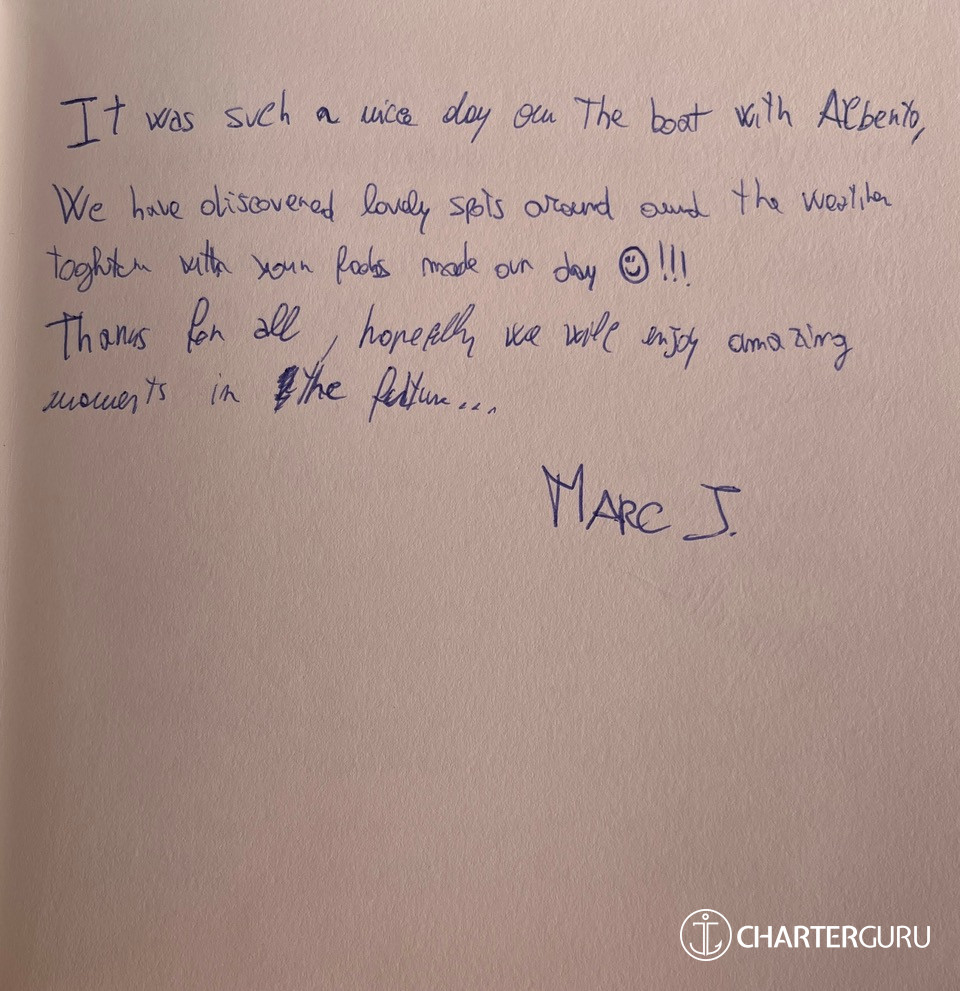 It was such a nice day on The boat with Alberto,
We have discovered lovely spots around and the weather
toghter with your foods made our day ☺!!!
Thanks for all, hopefully we will enjoy amazing
moments in the future...
MARC J.
CHARTERGURU